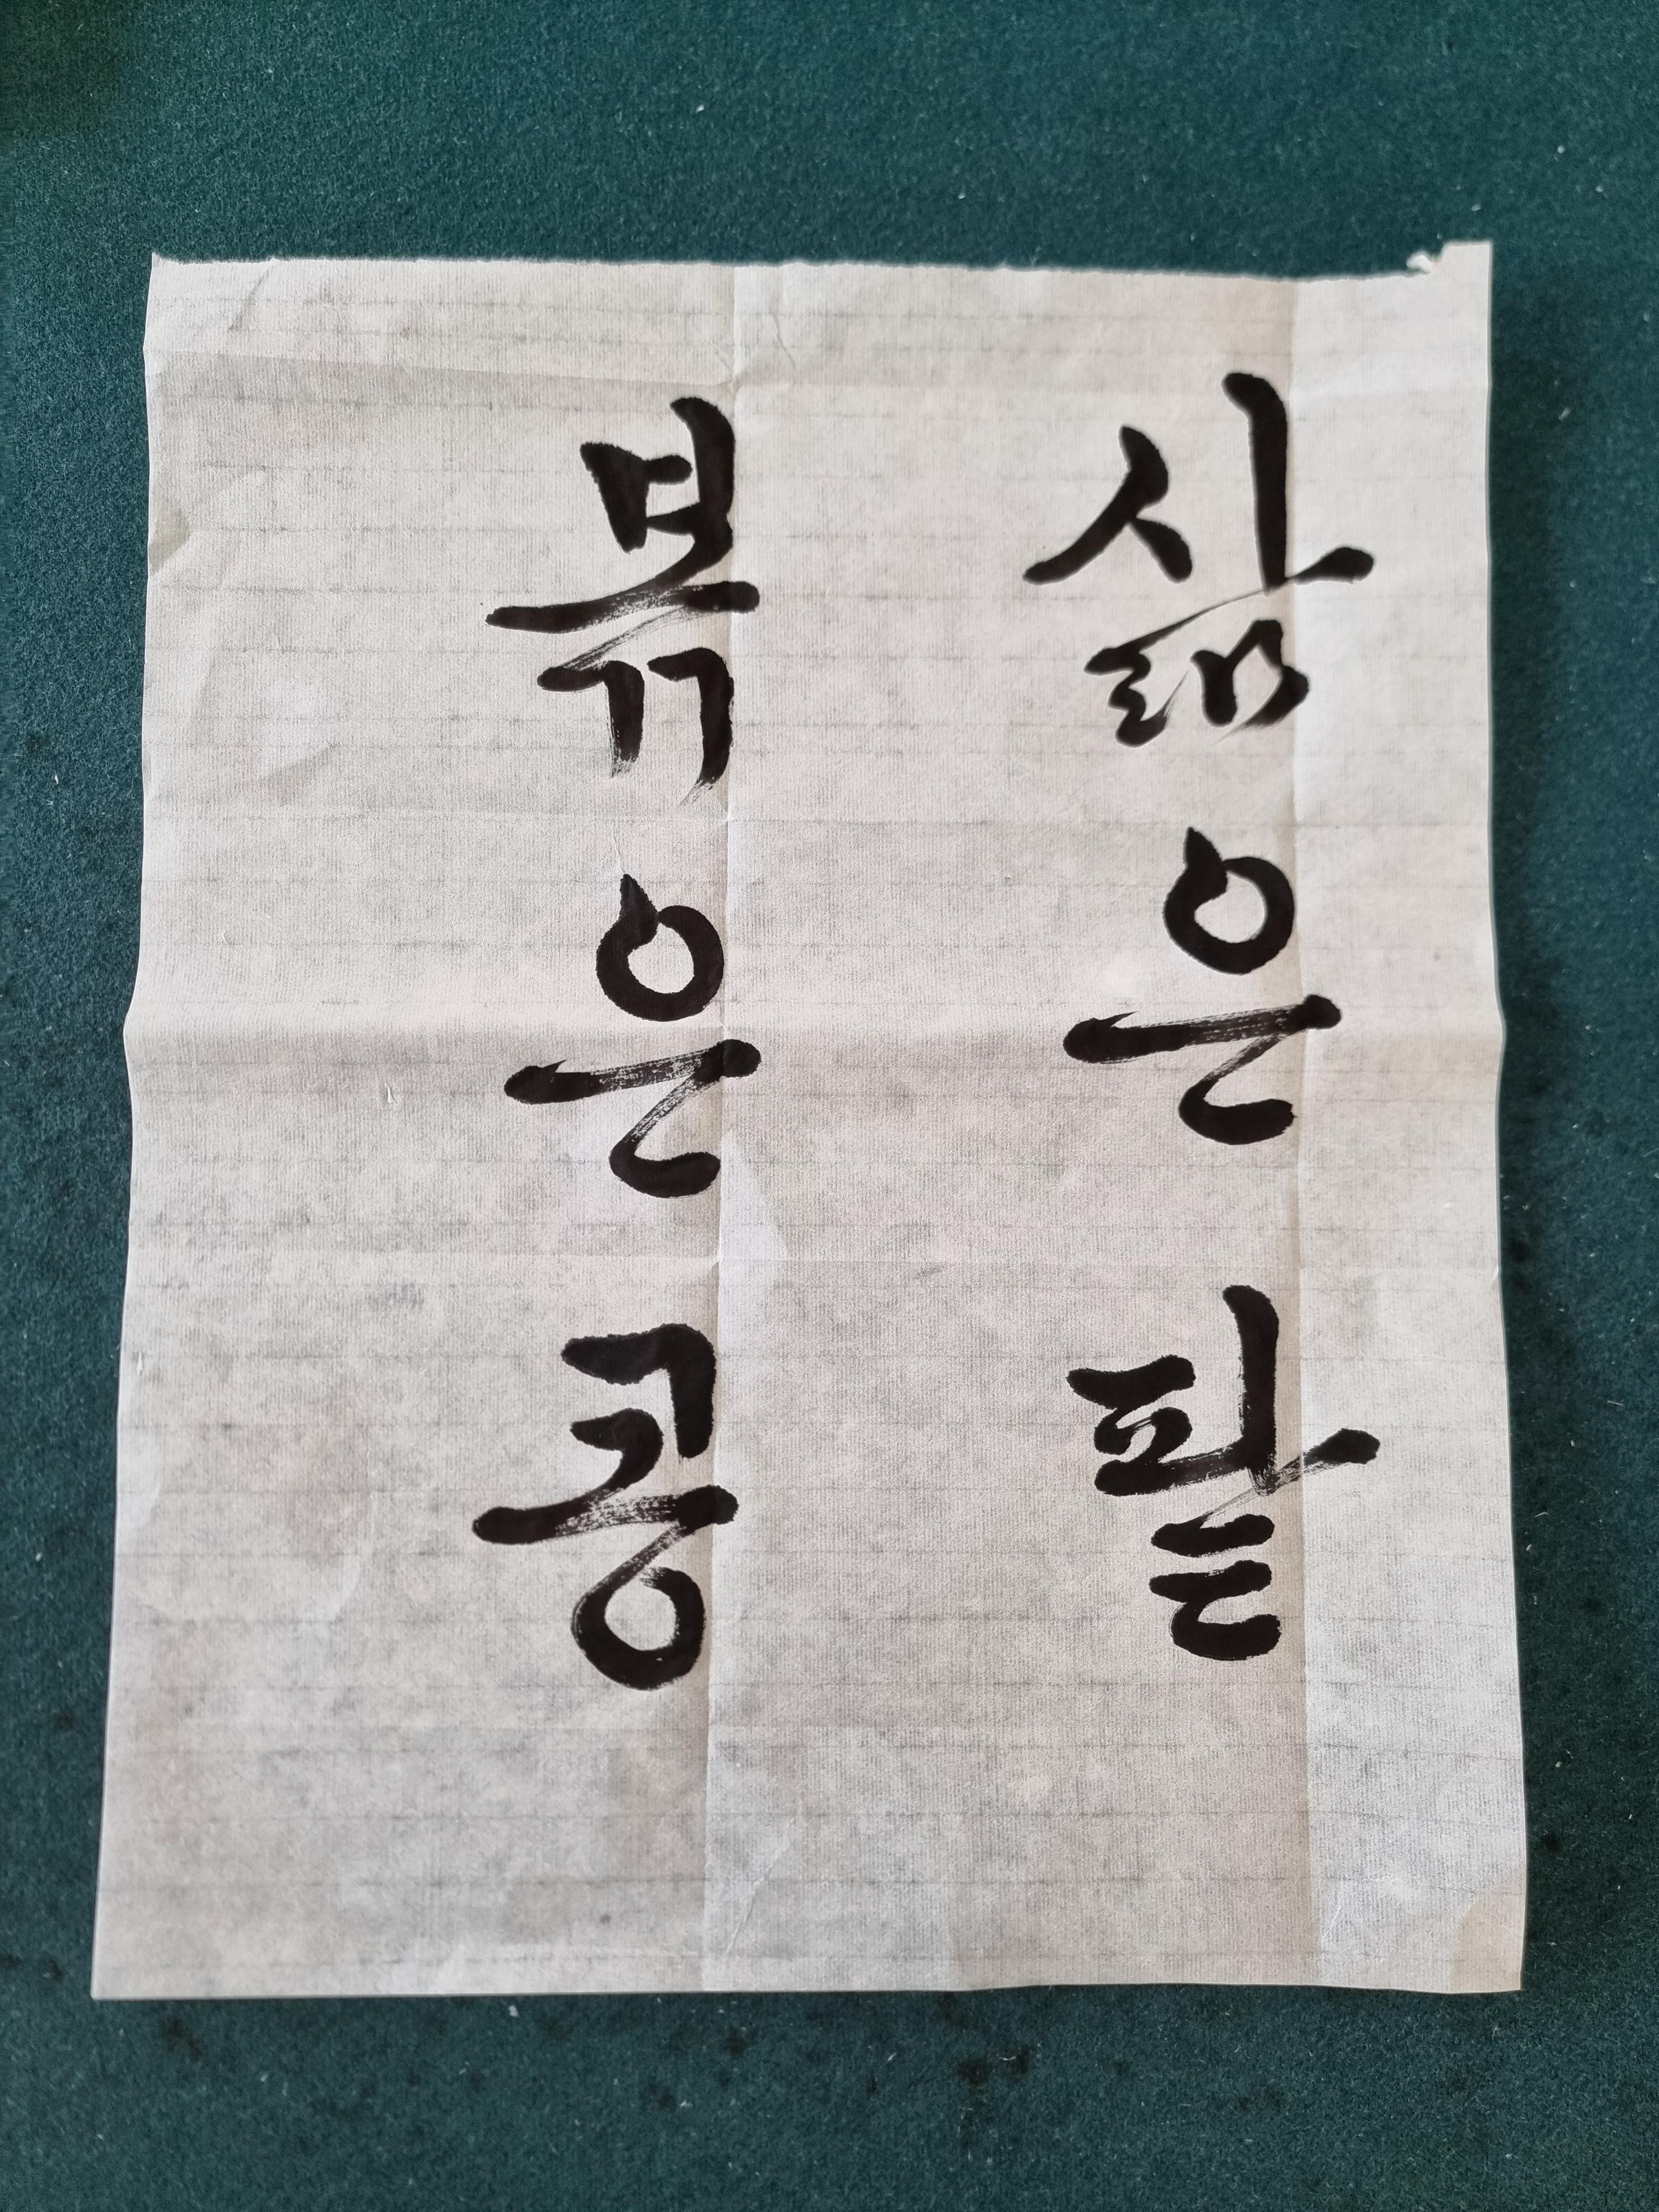 삶은 팥
볶은 콩